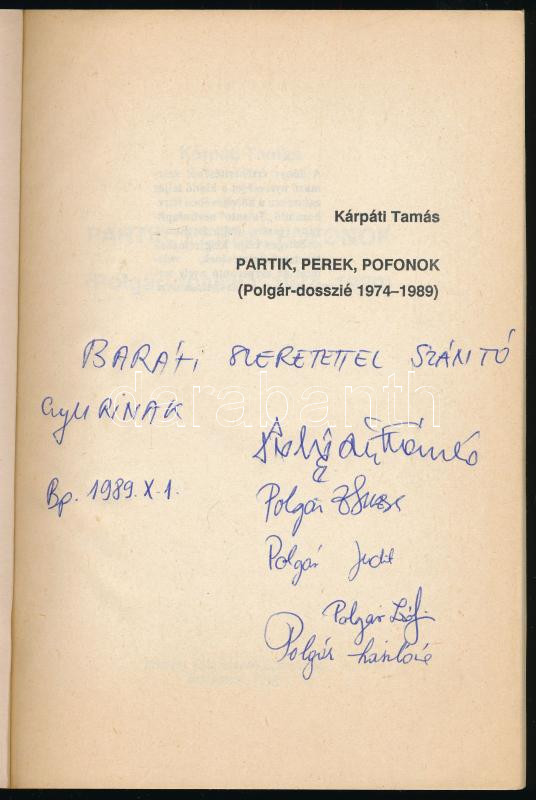 Kárpáti Tamás
PARTIK, PEREK, POFONOK
(Polgár-dosszié 1974–1989)
BARÁTI SZERETETTEL SZÁNTÓ
GYURINAK
darabanth
Bp. 1989. X. 1.
Polgár Zsuzsa
Polgár Judit
Polgár Zsófi
Polgár